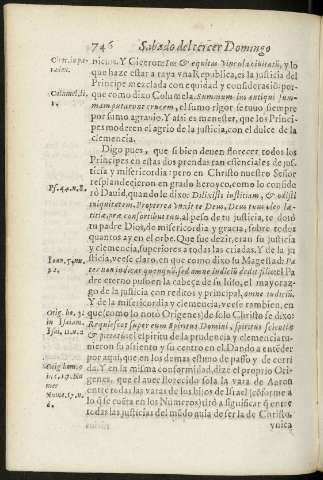 746 Sabado del tercer Domingo
nicion. Y Ciceron: & equitas vincula ciuitatũ, y lo
que haze estar a raya vna Republica, es la justicia del
Principe mezclada con equidad y consideració: por-
que como dixo Columela. Summum ius antiqui sum-
mam putarunt crucem, el sumo rigor se tuuo siempre
por sumo agrauio. Y assi es menester, que los Princi-
pes moderen el agrio de la justicia, con el dulce de la
clemencia.
Digo pues, que si bien deuen florecer todos los
Principes en estas dos prendas tan essenciales de jus-
ticia y misericordia: pero en Christo nuestro Señor
resplandecieron en grado heroyco, como lo conside-
Ps. 44. n. 8.
ró Dauid, quando le dixo: Dilexisti iustitiam, & odisti
iniquitatem. Propterea vnxit te Deus, Deus tuus oleo læ-
titiæ præ consortibus tuis, al peso de tu justicia, te dotò
tu padre Dios, de misericordia y gracia, sobre todos
quantos ay en el orbe. Que fue dezir, eran su justicia
y clemencia, superiores a todas las criadas. Y de la ju
Ioan. 5. nu.
sticia, veese claro, en que como dixo su Magestad: Pa
ter non iudicat quenquã, sed omne iudiciũ dedit filio: el Pa
dre eterno puso en la cabeça de su hijo, el mayoraz-
go de la justicia con reditos y principal, omne iudiciũ.
Y de la misericordia y clemencia, veese tambien, en
que (como lo notò Origenes) de solo Christo se dixo:
Requiescet super eum Spiritus Domini, spiritus scientiæ
& pietatis: el espiritu de la prudencia y clemencia tu-
uieron su assiento y su centro en el. Dando a enteder
por aqui, que en los demas estuuo de passo y de cerri
da. Y en la misma conformidad, dize el proprio Ori-
genes, que el auer florecido sola la vara de Aaron
entre todas las varas de los hijos de Israel (cóforme a
lo que cuẽta en los Numeros) fue a significar q̃ entre
todas las justicias del mũdo auia de ser la de Christo,
vnica